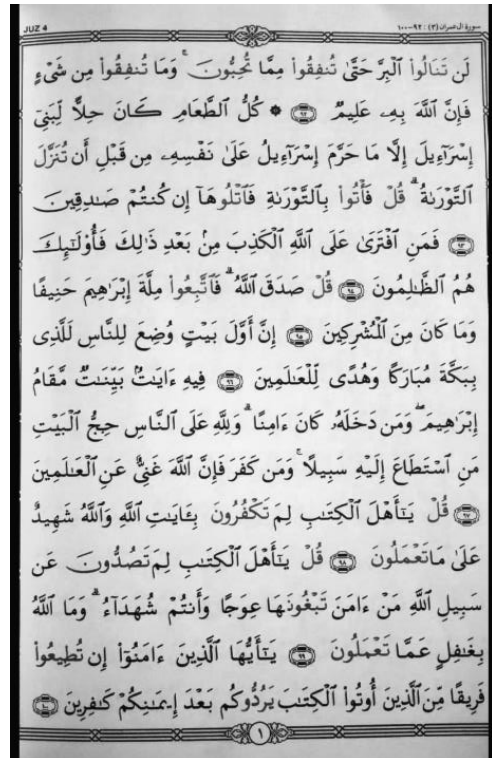 JUZ 4
سورة آل عمران (٣) : ٩٢-١٠٠
لَن تَنَالُوا۟ ٱلْبِرَّ حَتَّىٰ تُنفِقُوا۟ مِمَّا تُحِبُّونَ ۚ وَمَا تُنفِقُوا۟ مِن شَىْءٍ
فَإِنَّ ٱللَّهَ بِهِۦ عَلِيمٌ ۝٩٢ ۞ كُلُّ ٱلطَّعَامِ كَانَ حِلًّا لِّبَنِىٓ
إِسْرَٰٓءِيلَ إِلَّا مَا حَرَّمَ إِسْرَٰٓءِيلُ عَلَىٰ نَفْسِهِۦ مِن قَبْلِ أَن تُنَزَّلَ
ٱلتَّوْرَىٰةُ ۗ قُلْ فَأْتُوا۟ بِٱلتَّوْرَىٰةِ فَٱتْلُوهَآ إِن كُنتُمْ صَٰدِقِينَ
۝٩٣ فَمَنِ ٱفْتَرَىٰ عَلَى ٱللَّهِ ٱلْكَذِبَ مِنۢ بَعْدِ ذَٰلِكَ فَأُو۟لَٰٓئِكَ
هُمُ ٱلظَّٰلِمُونَ ۝٩٤ قُلْ صَدَقَ ٱللَّهُ ۗ فَٱتَّبِعُوا۟ مِلَّةَ إِبْرَٰهِيمَ حَنِيفًا
وَمَا كَانَ مِنَ ٱلْمُشْرِكِينَ ۝٩٥ إِنَّ أَوَّلَ بَيْتٍ وُضِعَ لِلنَّاسِ لَلَّذِى
بِبَكَّةَ مُبَارَكًا وَهُدًى لِّلْعَٰلَمِينَ ۝٩٦ فِيهِ ءَايَٰتٌۢ بَيِّنَٰتٌ مَّقَامُ
إِبْرَٰهِيمَ ۖ وَمَن دَخَلَهُۥ كَانَ ءَامِنًا ۗ وَلِلَّهِ عَلَى ٱلنَّاسِ حِجُّ ٱلْبَيْتِ
مَنِ ٱسْتَطَاعَ إِلَيْهِ سَبِيلًا ۚ وَمَن كَفَرَ فَإِنَّ ٱللَّهَ غَنِىٌّ عَنِ ٱلْعَٰلَمِينَ
۝٩٧ قُلْ يَٰٓأَهْلَ ٱلْكِتَٰبِ لِمَ تَكْفُرُونَ بِـَٔايَٰتِ ٱللَّهِ وَٱللَّهُ شَهِيدٌ
عَلَىٰ مَا تَعْمَلُونَ ۝٩٨ قُلْ يَٰٓأَهْلَ ٱلْكِتَٰبِ لِمَ تَصُدُّونَ عَن
سَبِيلِ ٱللَّهِ مَنْ ءَامَنَ تَبْغُونَهَا عِوَجًا وَأَنتُمْ شُهَدَآءُ ۗ وَمَا ٱللَّهُ
بِغَٰفِلٍ عَمَّا تَعْمَلُونَ ۝٩٩ يَٰٓأَيُّهَا ٱلَّذِينَ ءَامَنُوٓا۟ إِن تُطِيعُوا۟
فَرِيقًا مِّنَ ٱلَّذِينَ أُوتُوا۟ ٱلْكِتَٰبَ يَرُدُّوكُم بَعْدَ إِيمَٰنِكُمْ كَٰفِرِينَ ۝١٠٠
١